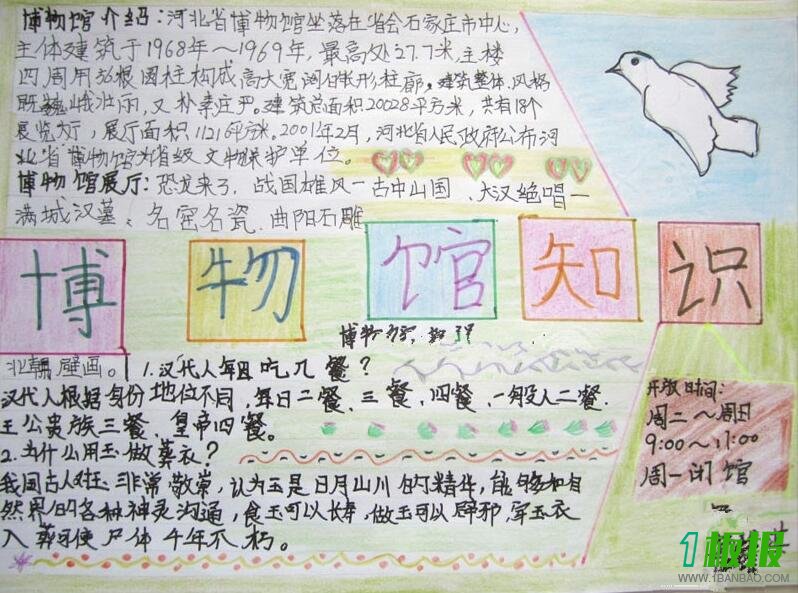 博物馆介绍:河北省博物馆坐落在省会石家庄市中心,
主体建筑于1968年~1969年,最高处27.7米,主楼
四周用 根圆柱构成高大宽阔 形柱廊,建筑整体风格
既巍峨壮丽,又朴素庄严。建筑总面积20028平方米,共有18个
展览大厅,展厅面积1121 平方米。2001年2月,河北省人民政府公布河
北省博物馆为省级文物保护单位。
博物馆展厅:恐龙来了,战国雄风—古中山国、大汉绝唱—
满城汉墓、名窑名瓷、曲阳石雕
博物馆知识
北朝壁画。
1.汉代人每日吃几餐?
汉代人根据身份地位不同,每日二餐、三餐,四餐,一般人二餐.
王公贵族三餐、皇帝四餐。
2.为什么用玉做葬衣?
我国古人对玉非常敬崇,认为玉是日月山川的精华,能够和自
然界的各种神灵沟通,食玉可以长寿,做玉可以辟邪,穿玉衣
入葬可使尸体千年不朽。
开放时间:
周二~周日
9:00~17:00
周一闭馆
1板报
WWW.1BANBAO.COM